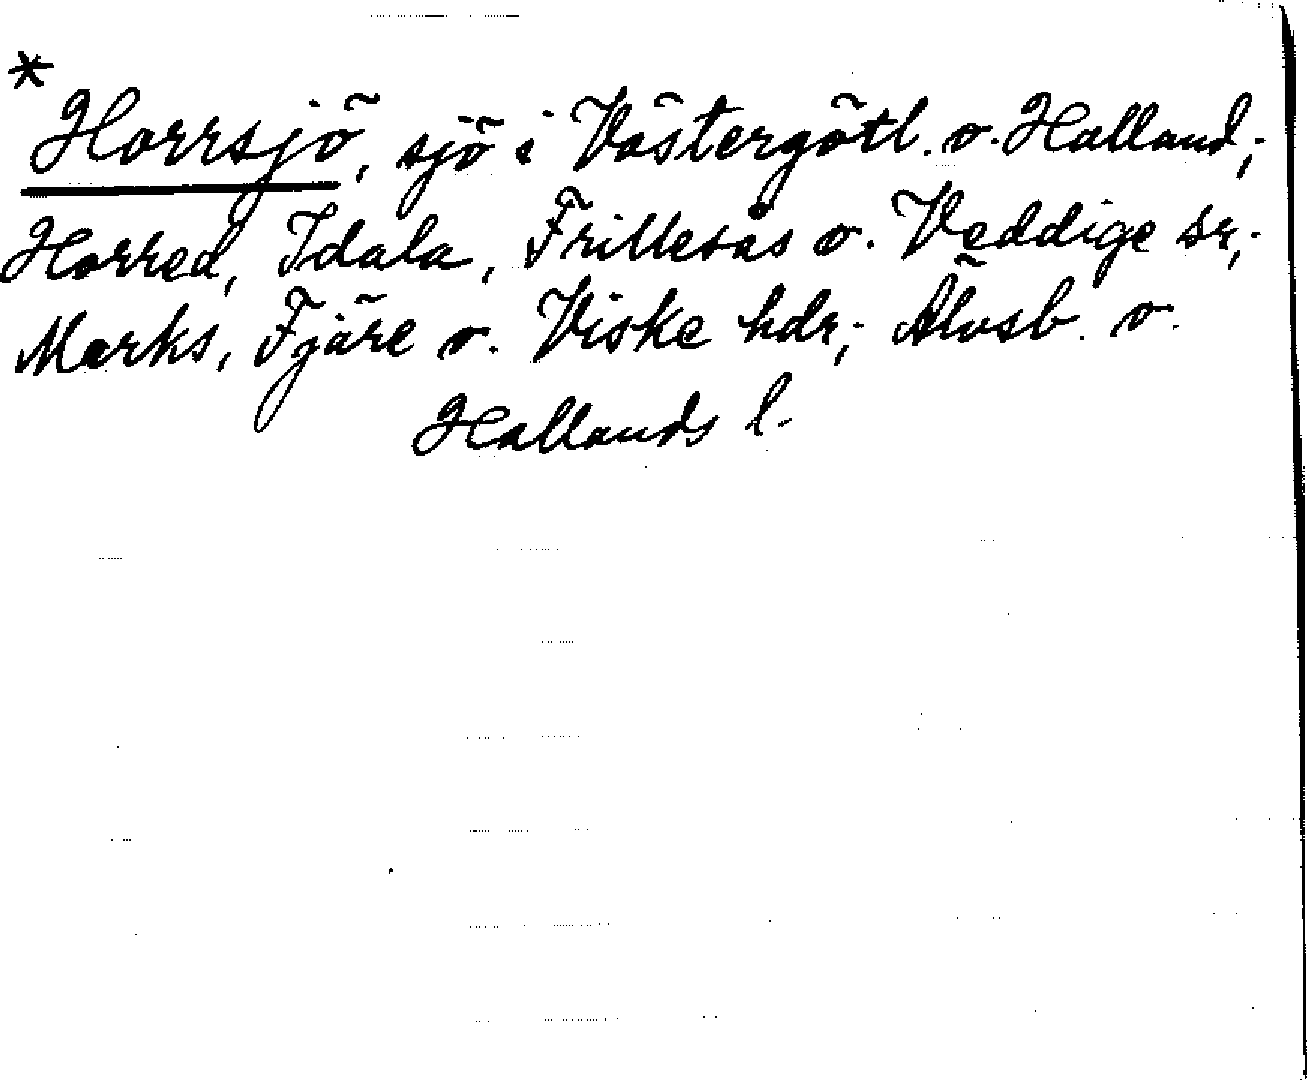 *
Horrsjö, sjö i Västergötl. o. Halland;
Horred, Idala, Frillesås o. Veddige sr;
Marks, Fjäre o. Viske hdr; Älvsb. o.
Hallands l.